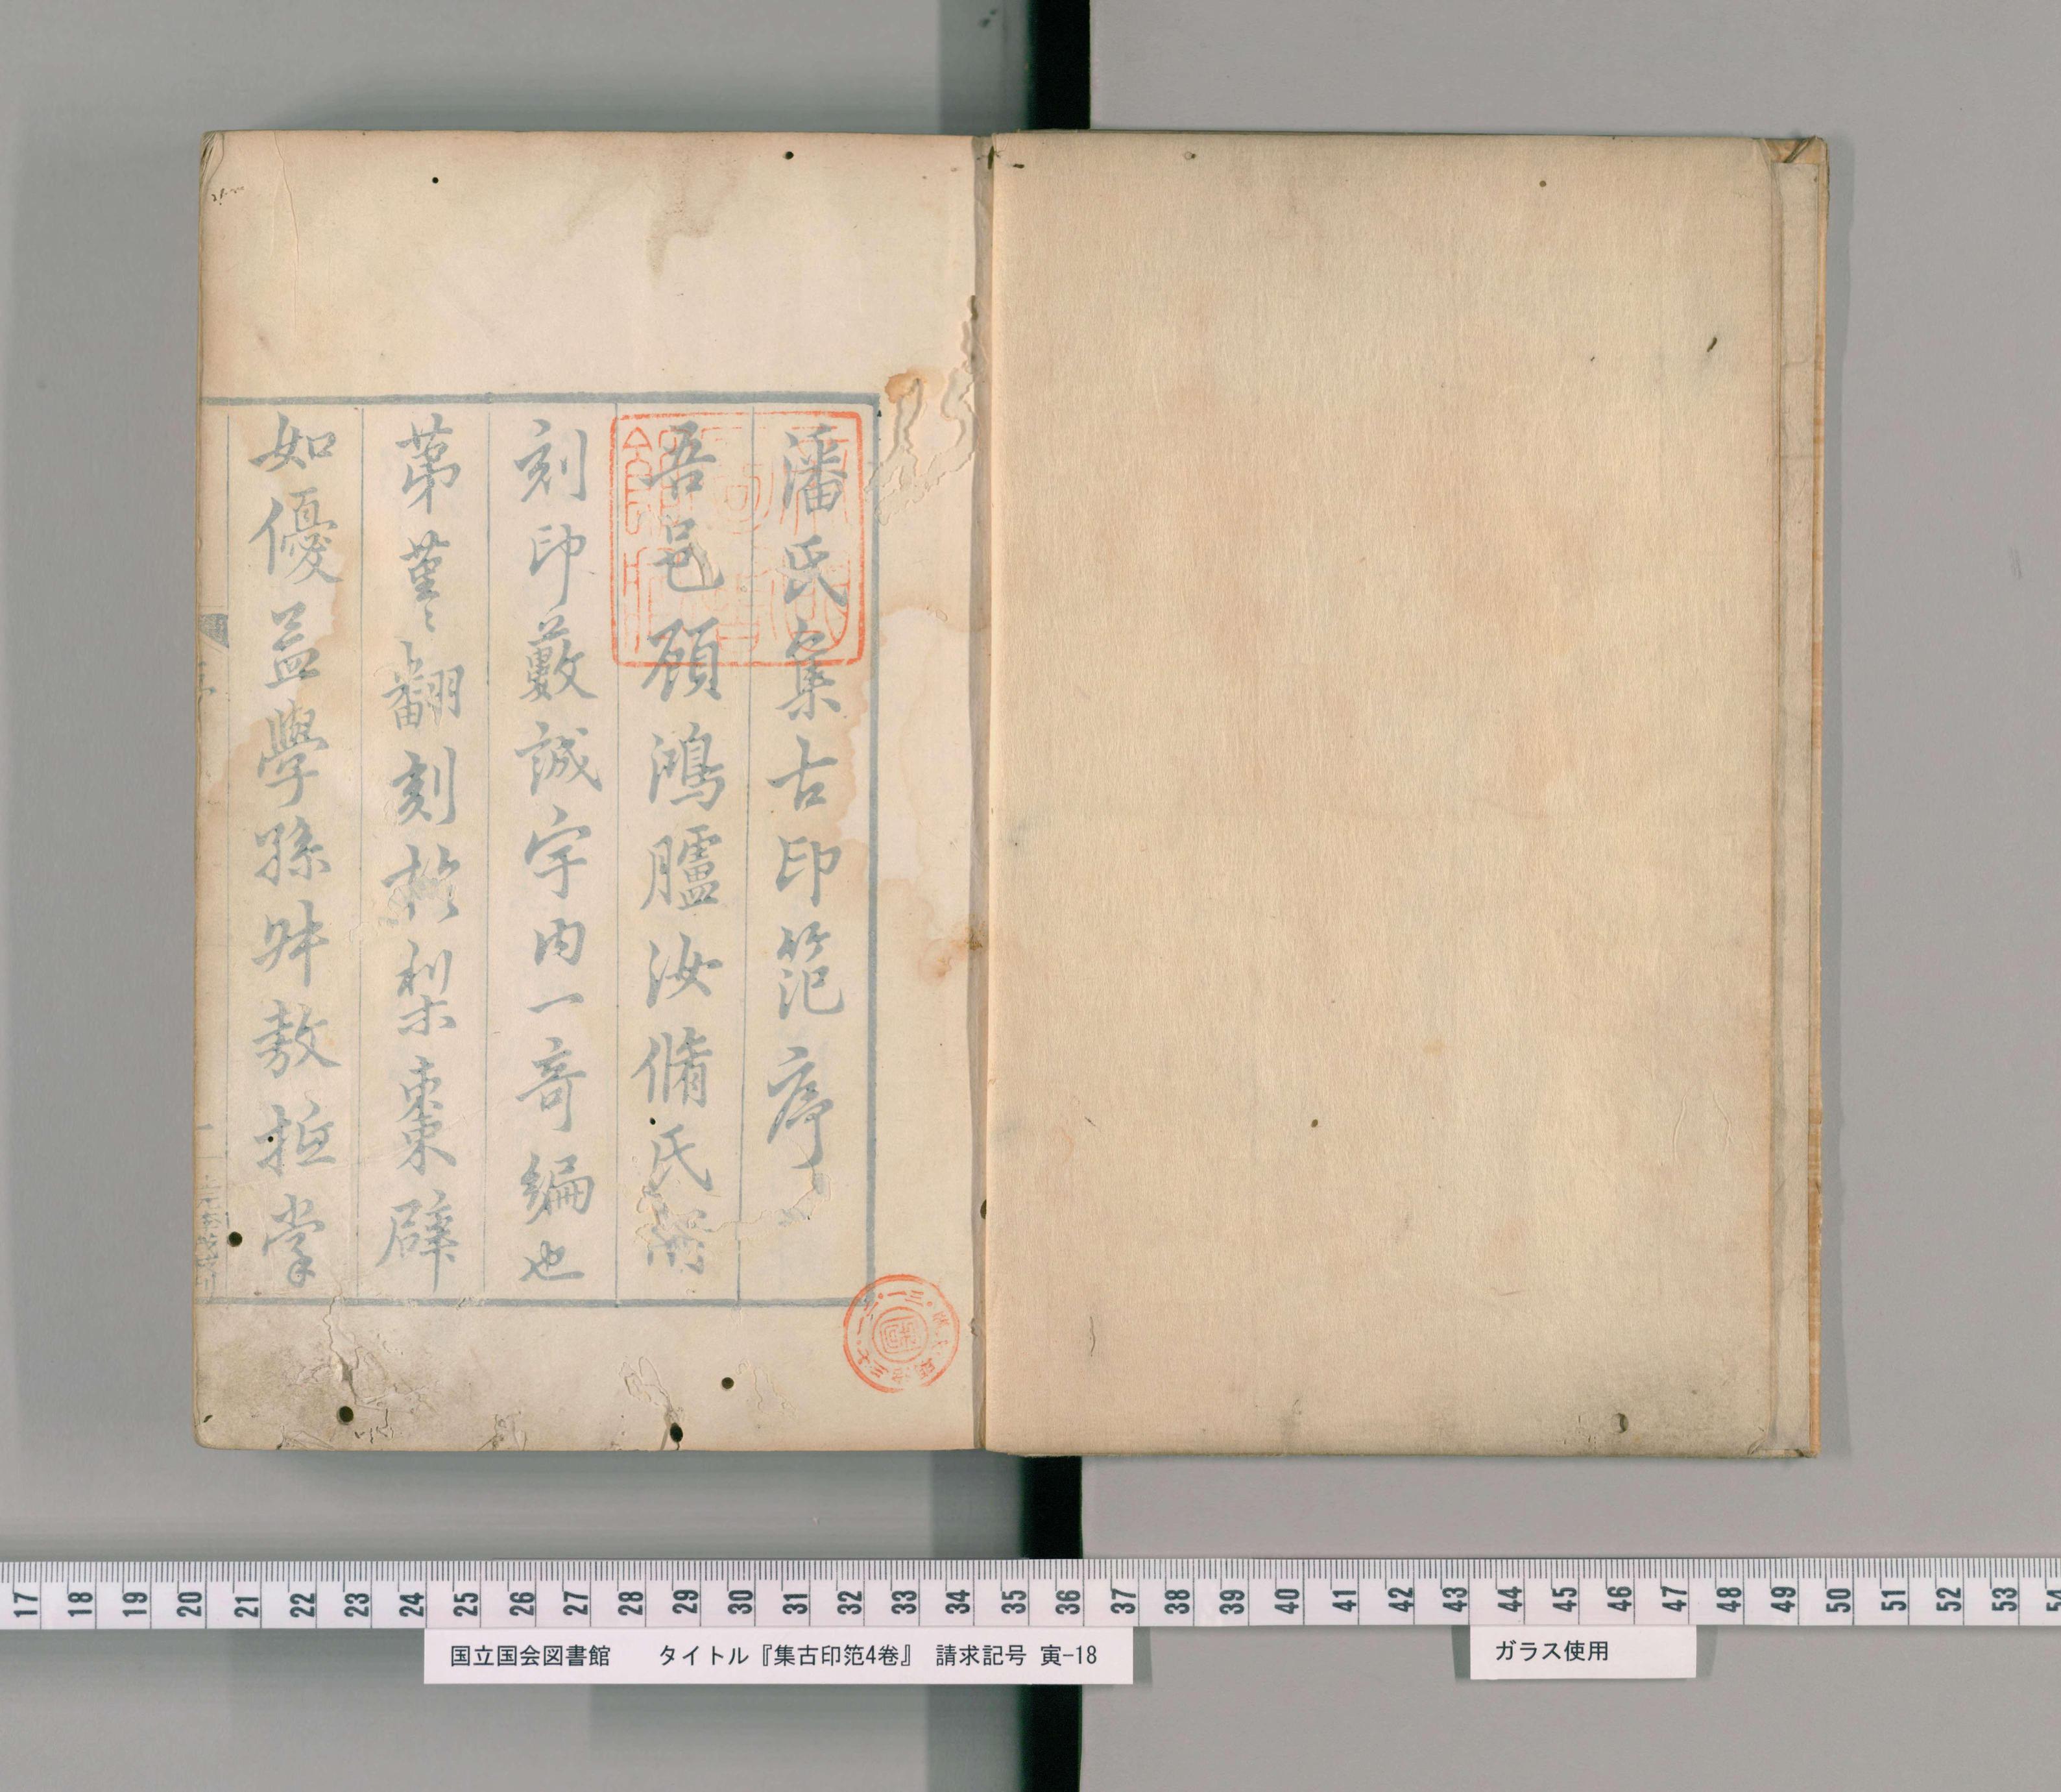 潘氏集古印笵序
吾邑顧鴻臚汝脩氏所
刻印藪誠宇内一奇編也
苐堇〻翻刻於梨棗群
如優孟學孫叔敖抵掌
17 18 19 20 21 22 23 24 25 26 27 28 29 30 31 32 33 34 35 36 37 38 39 40 41 42 43 44 45 46 47 48 49 50 51 52 53 54
国立国会図書館 タイトル『集古印笵4巻』 請求記号 寅-18
ガラス使用